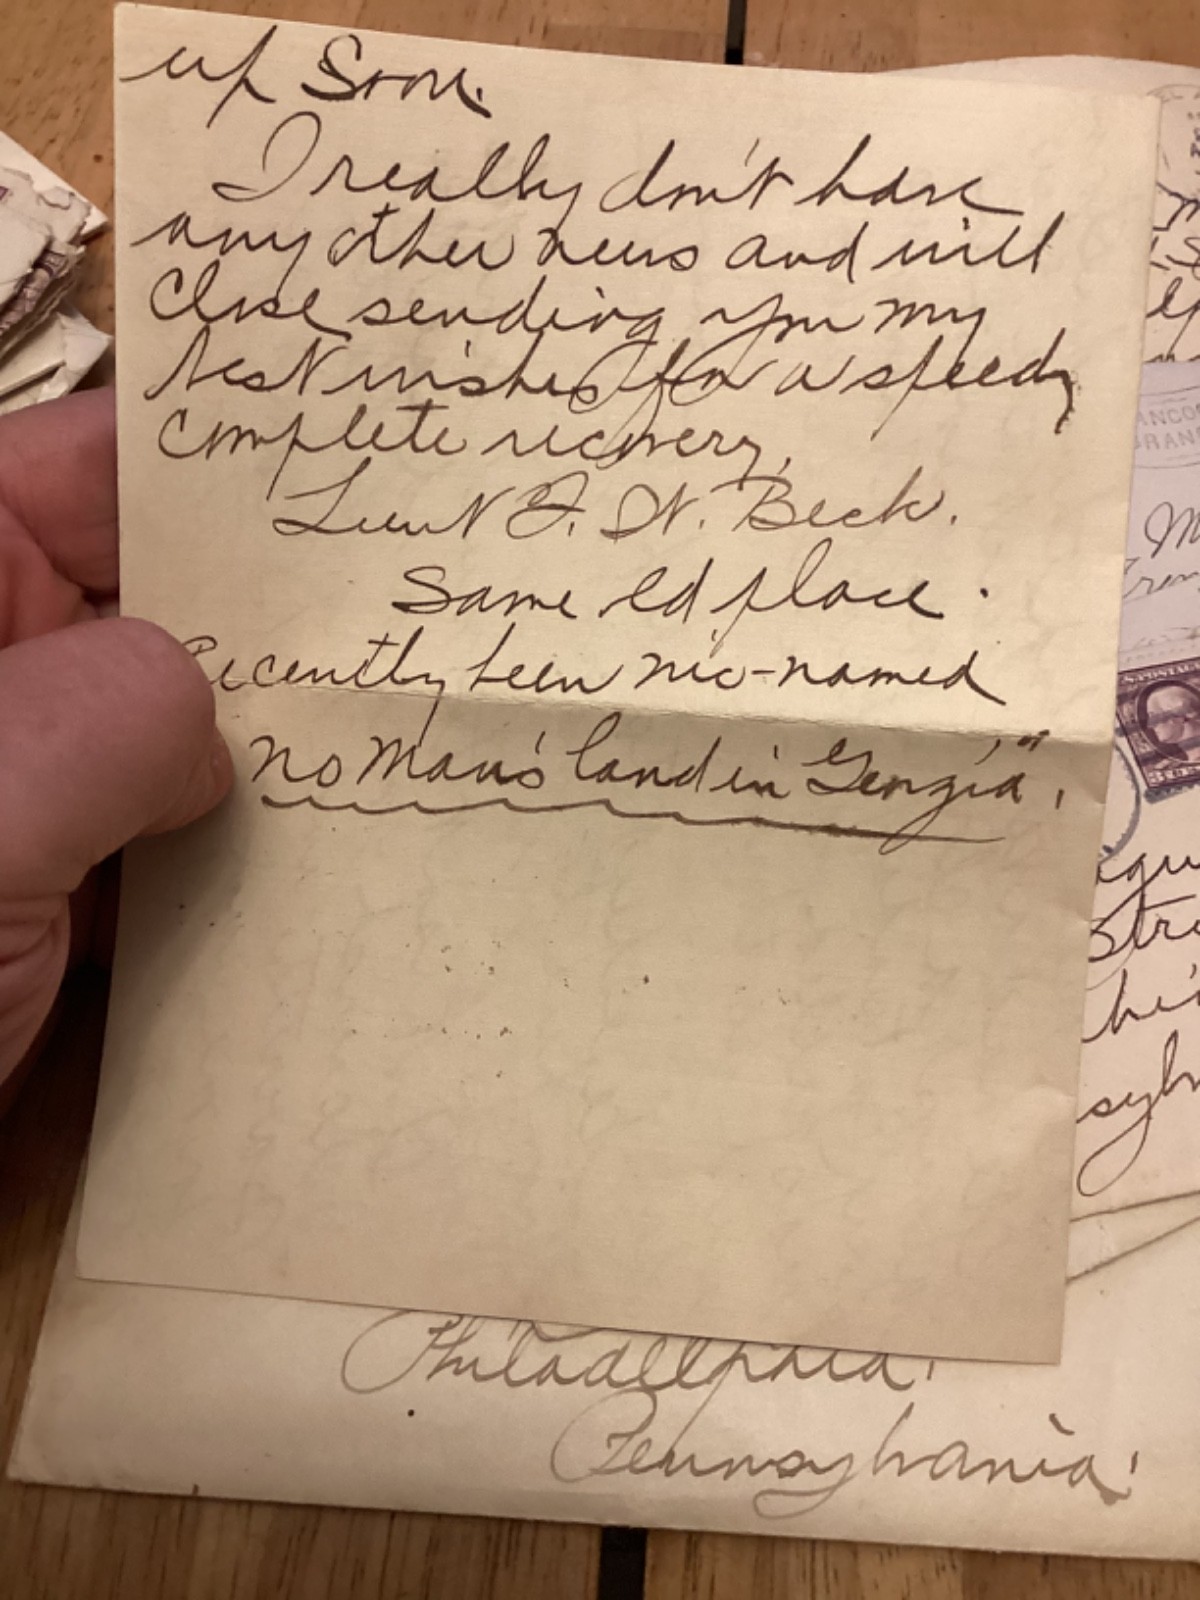 up Soon.
I really don't have
any other news and will
Close sending you my
best wishes for a speedy
complete recovery,
Lieut J. W. Beck.
Same old place.
Recently been nic-named
no Man's land in Georgia".
Philadelphia.
Pennsylvania.